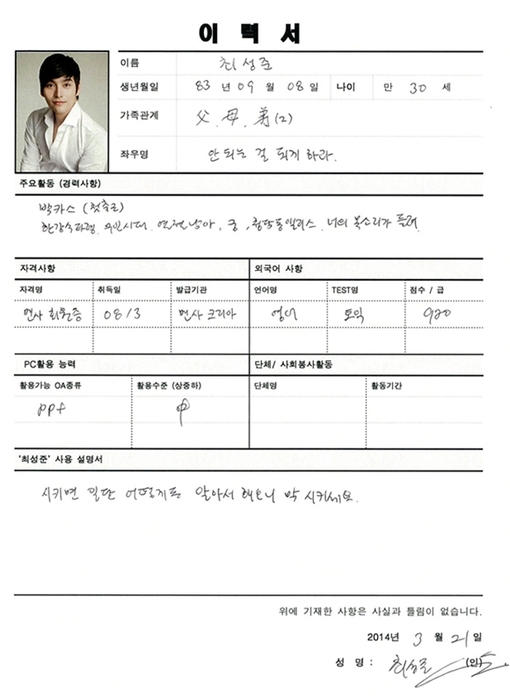 이 력 서
이름 최성준
생년월일 83 년 09 월 08 일 나이 만 30 세
가족관계 父, 母, 弟(2)
좌우명 안 되는 걸 되게 하라.
주요활동 (경력사항)
박카스 (첫출근)
한강수타령, 무인시대, 연개남아, 궁, 청담동앨리스, 너의 목소리가 들려
자격사항 외국어 사항
자격명 취득일 발급기관 언어명 TEST명 점수 / 급
면사 회원증 08 / 3 면사 코리아 영어 토익 920
PC활용 능력 단체/ 사회봉사활동
활용가능 OA종류 활용수준 (상중하) 단체명 활동기간
ppt 中
'최성준' 사용 설명서
시키면 일단 어떻게든 알아서 해오니 막 시키세요.
위에 기재한 사항은 사실과 틀림이 없습니다.
2014년 3 월 21 일
성 명 : 최성준 (인)